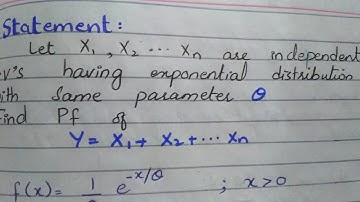 Statement:
Let X₁, X₂ ... Xn are independent
v's having exponential distribution
with same parameter θ
Find Pf of
Y = X₁ + X₂ + ... Xn
f(x) = 1 e^(-x/θ) ; x>0